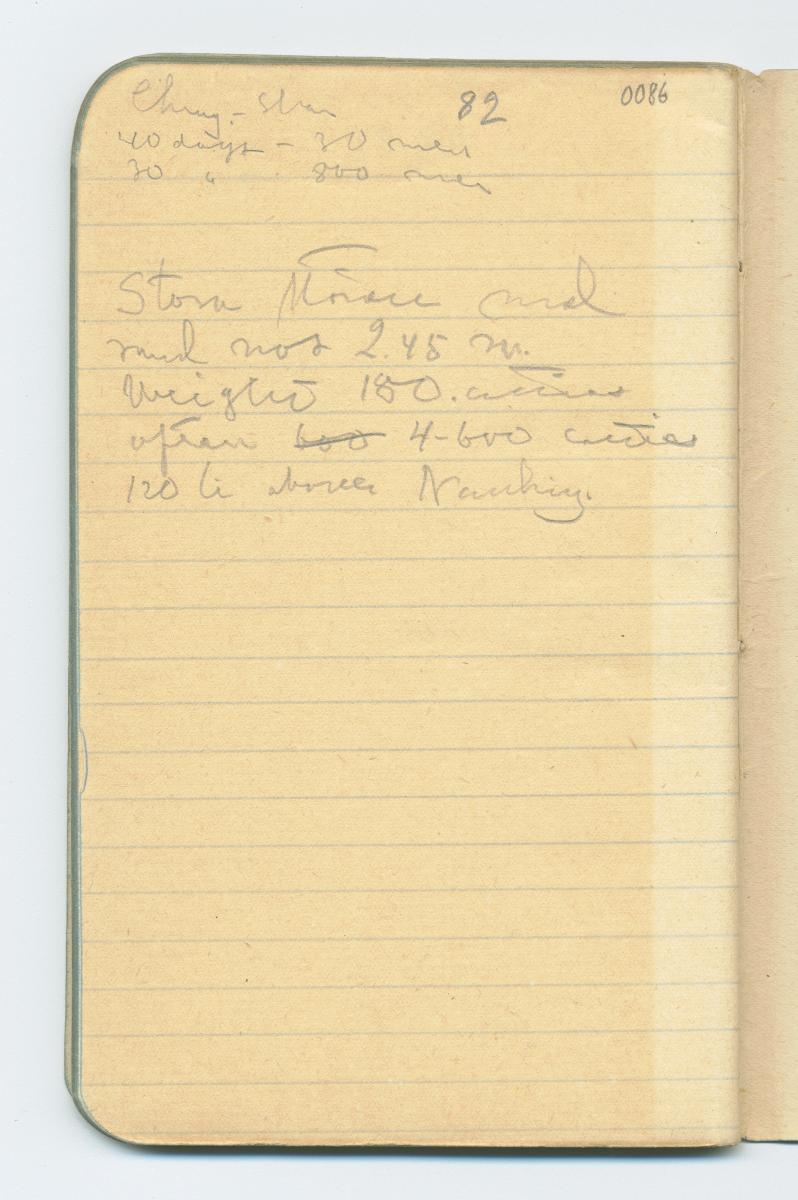 Chung-Shan 82 0086
40 days - 30 men
30 " . 800 men
Stora
2.45 m.
Weight 180. catties
often 600 4-600 catties
120 li above Nanking.